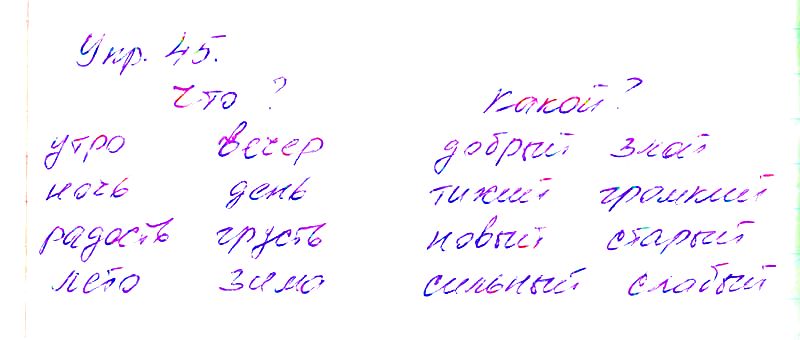 Упр. 45.
Что? Какой?
утро вечер добрый злой
ночь день тихий громкий
радость грусть новый старый
лето зима сильный слабый